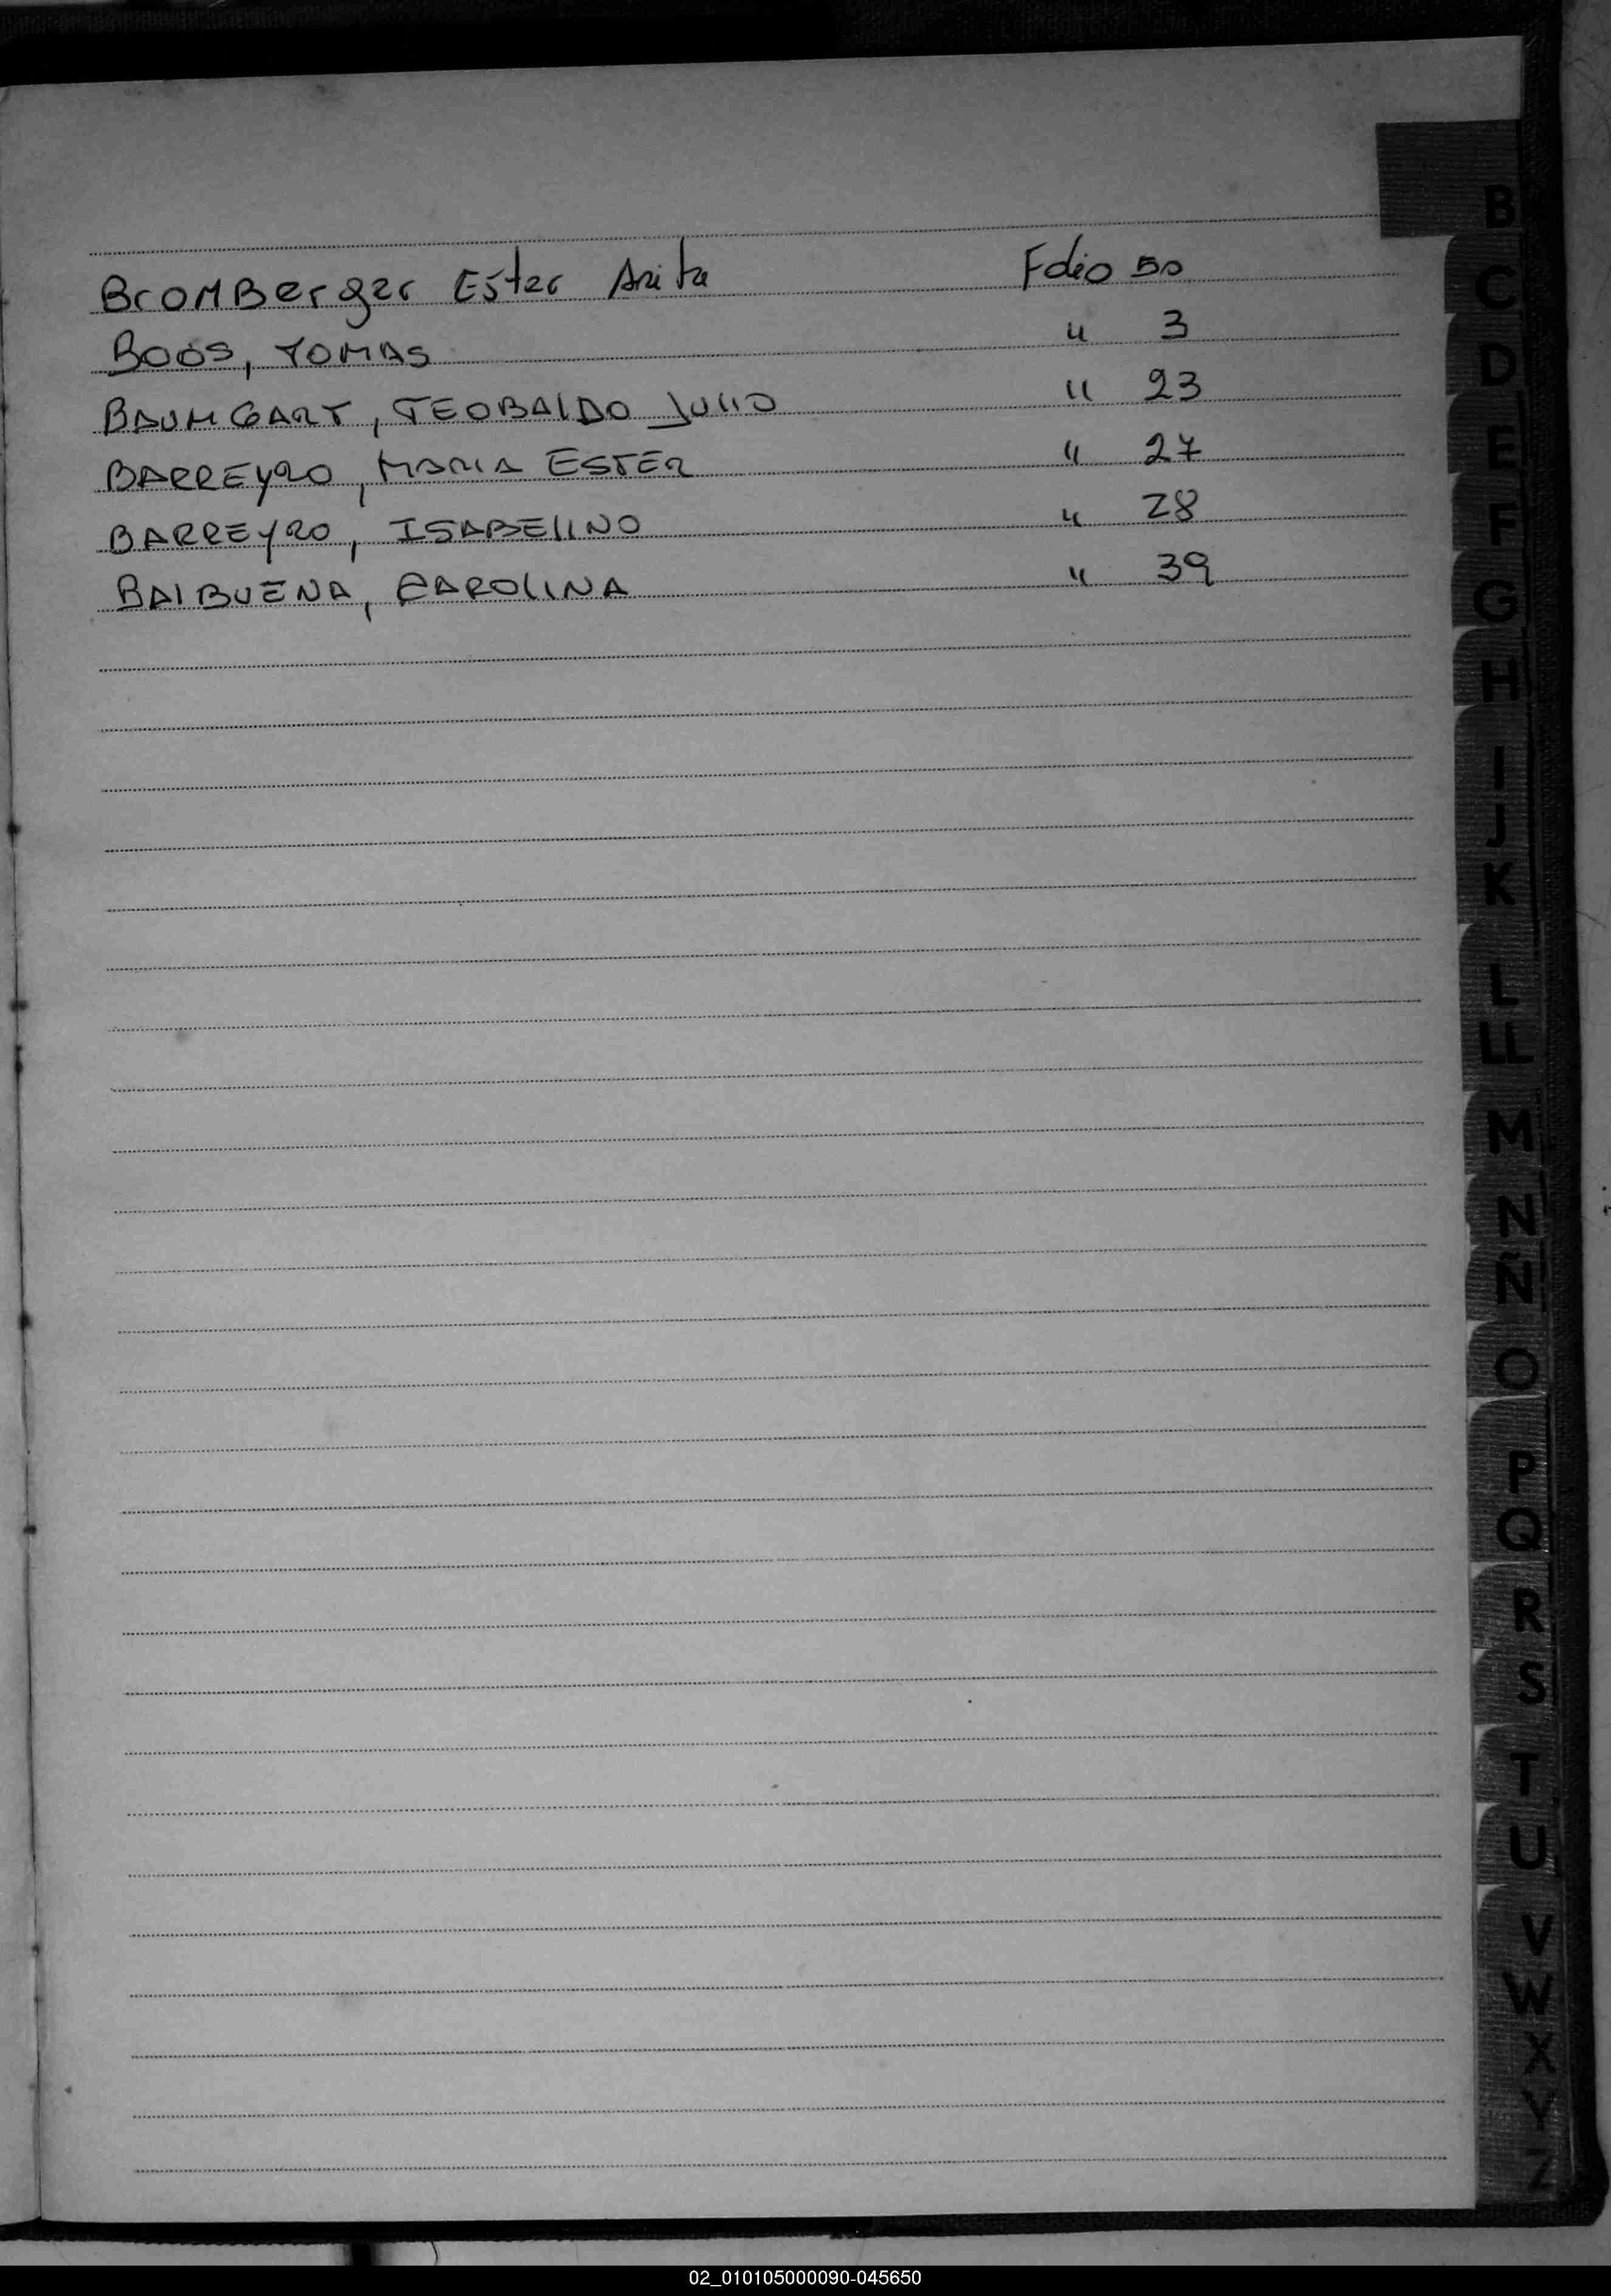 Bromberger Ester Anita Folio 50
BOOS, TOMAS " 3
BAUMGART, TEOBALDO JULIO " 23
BARREYRO, MARIA ESTER " 27
BARREYRO, ISABELINO " 28
BALBUENA, CAROLINA " 39
B
C
D
E
F
G
H
I
J
K
L
LL
M
N
Ñ
O
P
Q
R
S
T
U
V
W
X
Y
Z
02_010105000090-045650